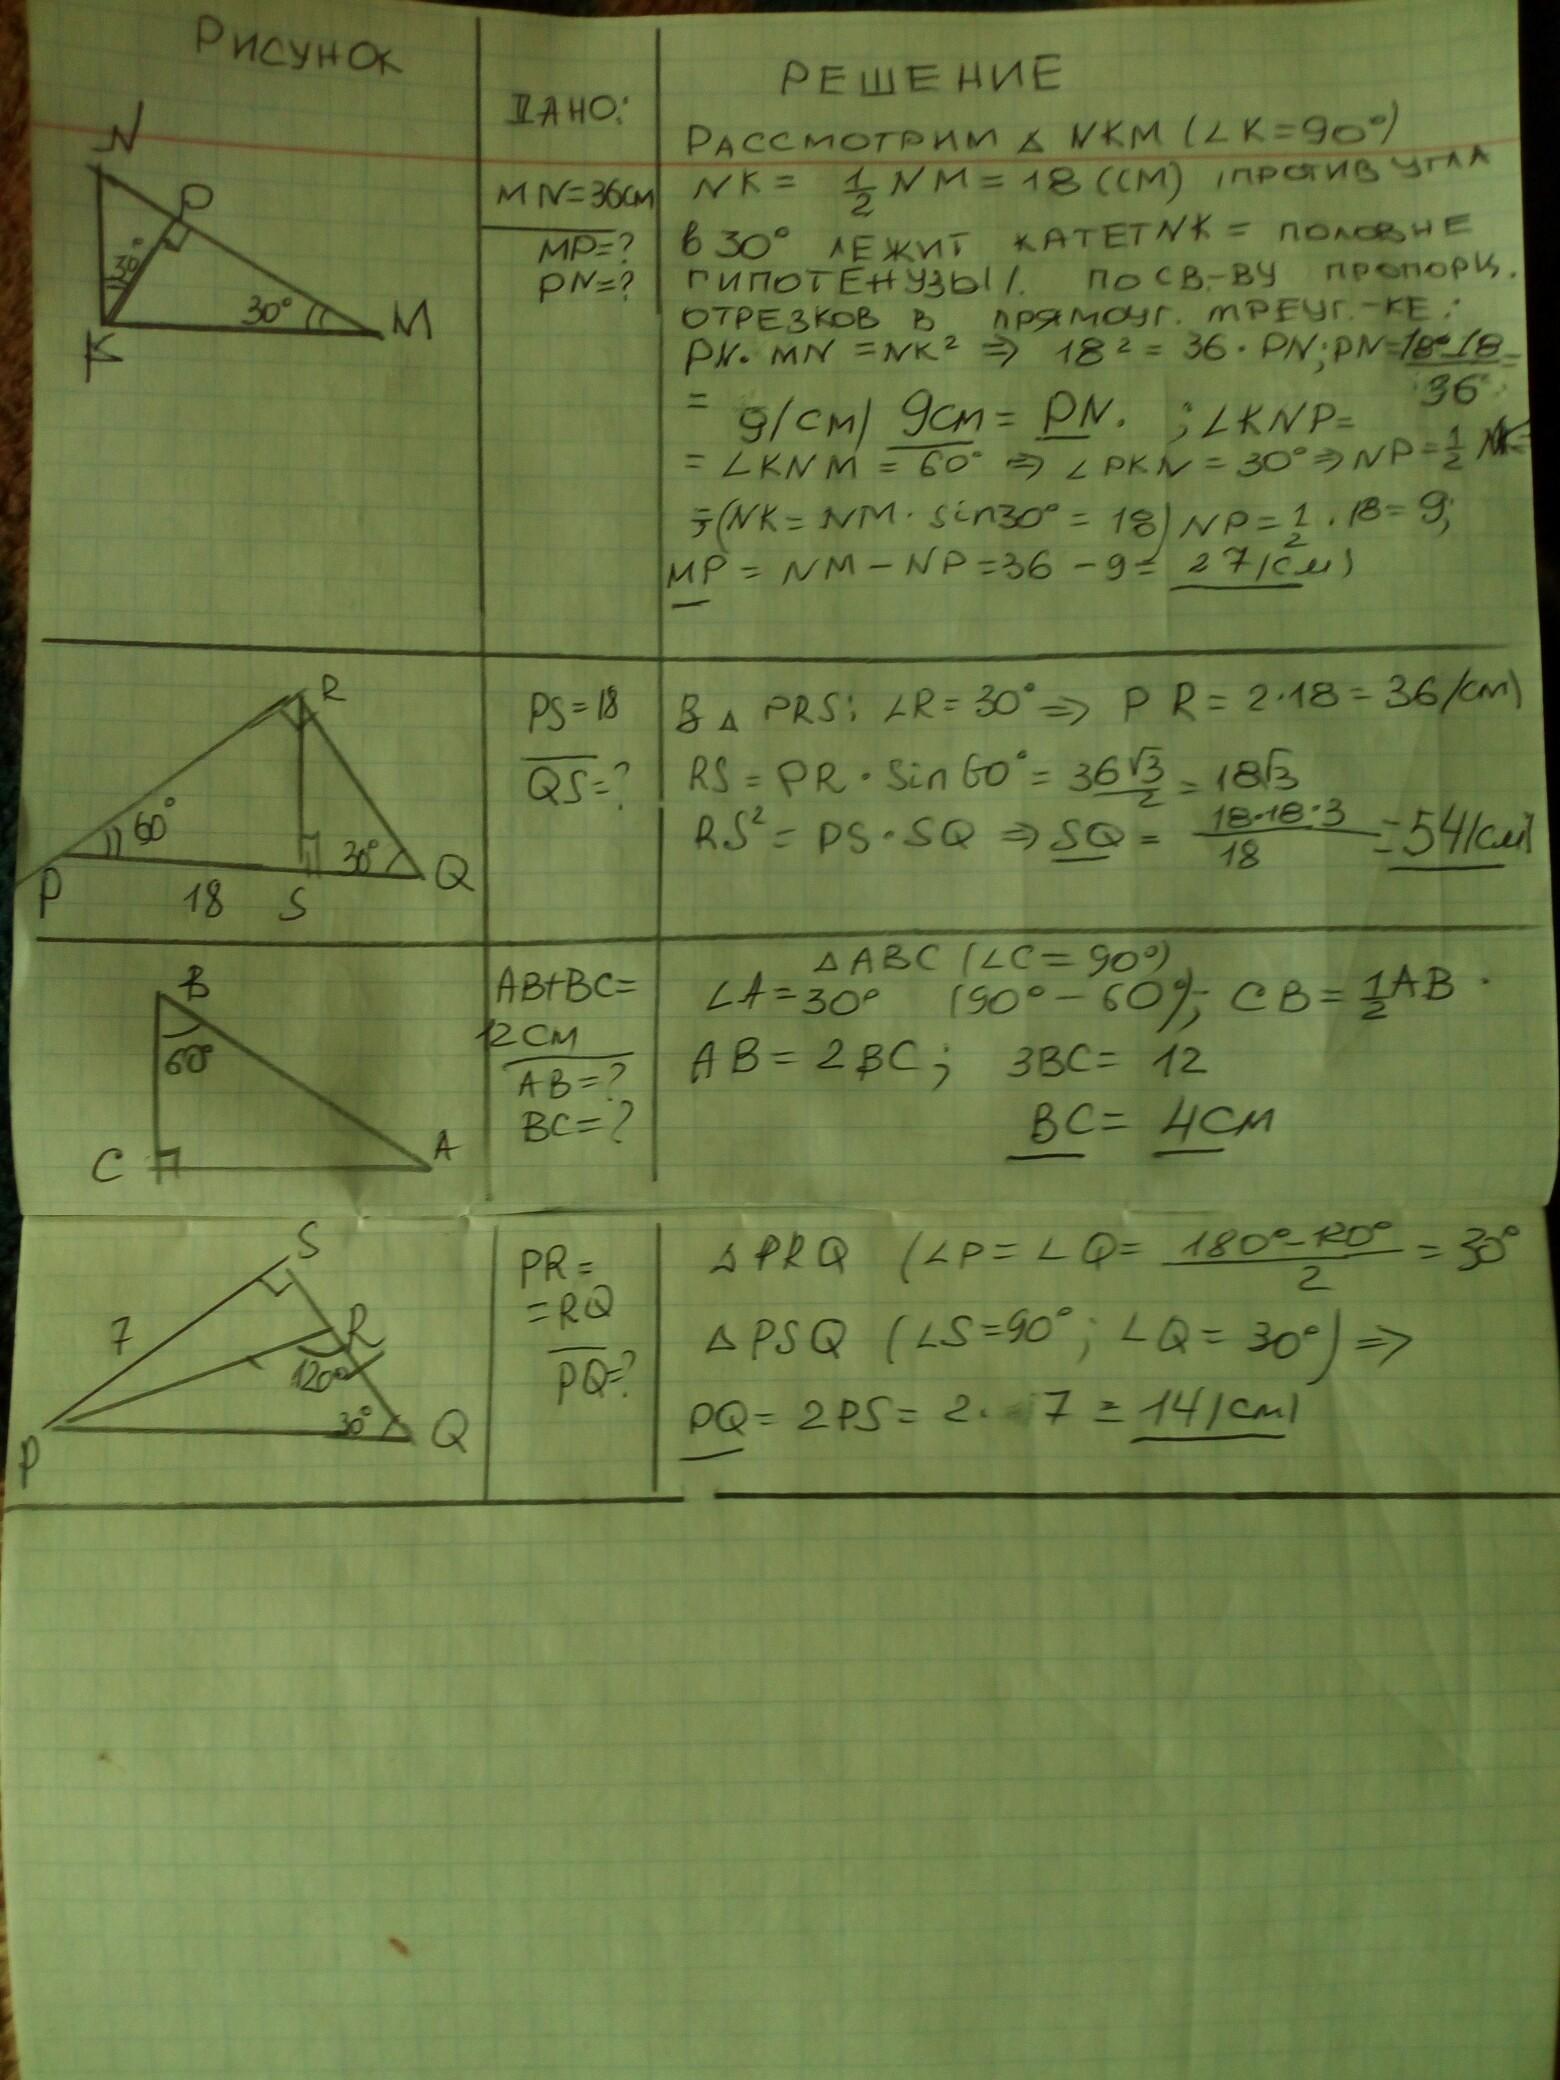 РИСУНОК
ДАНО:
РЕШЕНИЕ
N
P
30°
30°
K
M
MN=36см
MP=?
PN=?
РАССМОТРИМ △ NKM (∠K=90°)
NK = 1/2 NM = 18 (СМ) (ПРОТИВ УГЛА
В 30° ЛЕЖИТ КАТЕТ NK = ПОЛОВНЕ
ГИПОТЕНУЗЫ). ПО СВ-ВУ ПРОПОРЦ.
ОТРЕЗКОВ В ПРЯМОУГ. ТРЕУГ.-КЕ:
PN· MN = NK² ⇒ 18² = 36 · PN; PN = 18·18/36 =
= 9(СМ) 9см = PN. ; ∠KNP=
= ∠KNM = 60° ⇒ ∠PKN = 30° ⇒ NP = 1/2 NK=
=(NK = NM · sin30° = 18) NP = 1/2 · 18 = 9;
MP = NM – NP = 36 – 9 = 27(см)
R
60°
30°
P
18
S
Q
PS=18
QS=?
В △ PRS: ∠R = 30° ⇒ PR = 2·18 = 36(см)
RS = PR · Sin60° = 36√3/2 = 18√3
RS² = PS · SQ ⇒ SQ = 18·18·3/18 = 54(см)
B
60°
C
A
AB+BC=
12СМ
AB=?
BC=?
△ABC (∠C = 90°)
∠A=30° (90° – 60°); CB = 1/2 AB.
AB = 2BC; 3BC = 12
BC = 4СМ
S
7
R
120°
30°
P
Q
PR =
= RQ
PQ=?
△PRQ (∠P = ∠Q = 180°–120°/2 = 30°
△PSQ (∠S=90°; ∠Q = 30°) ⇒
PQ = 2PS = 2· 7 = 14(см)